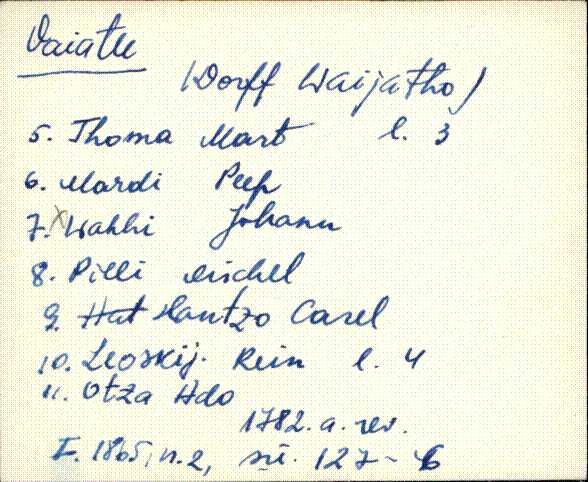 Vaiatu
(Dorff Waijatho)
5. Thoma Mart l. 3
6. Mardi Peep
7. Wahhi Johann
8. Pilli Michel
9. Hat Hantzo Carel
10. Leoskij. Rein l. 4
11. Otza Ado
1782. a. rev.
F. 1865, n. 2, sü. 127-